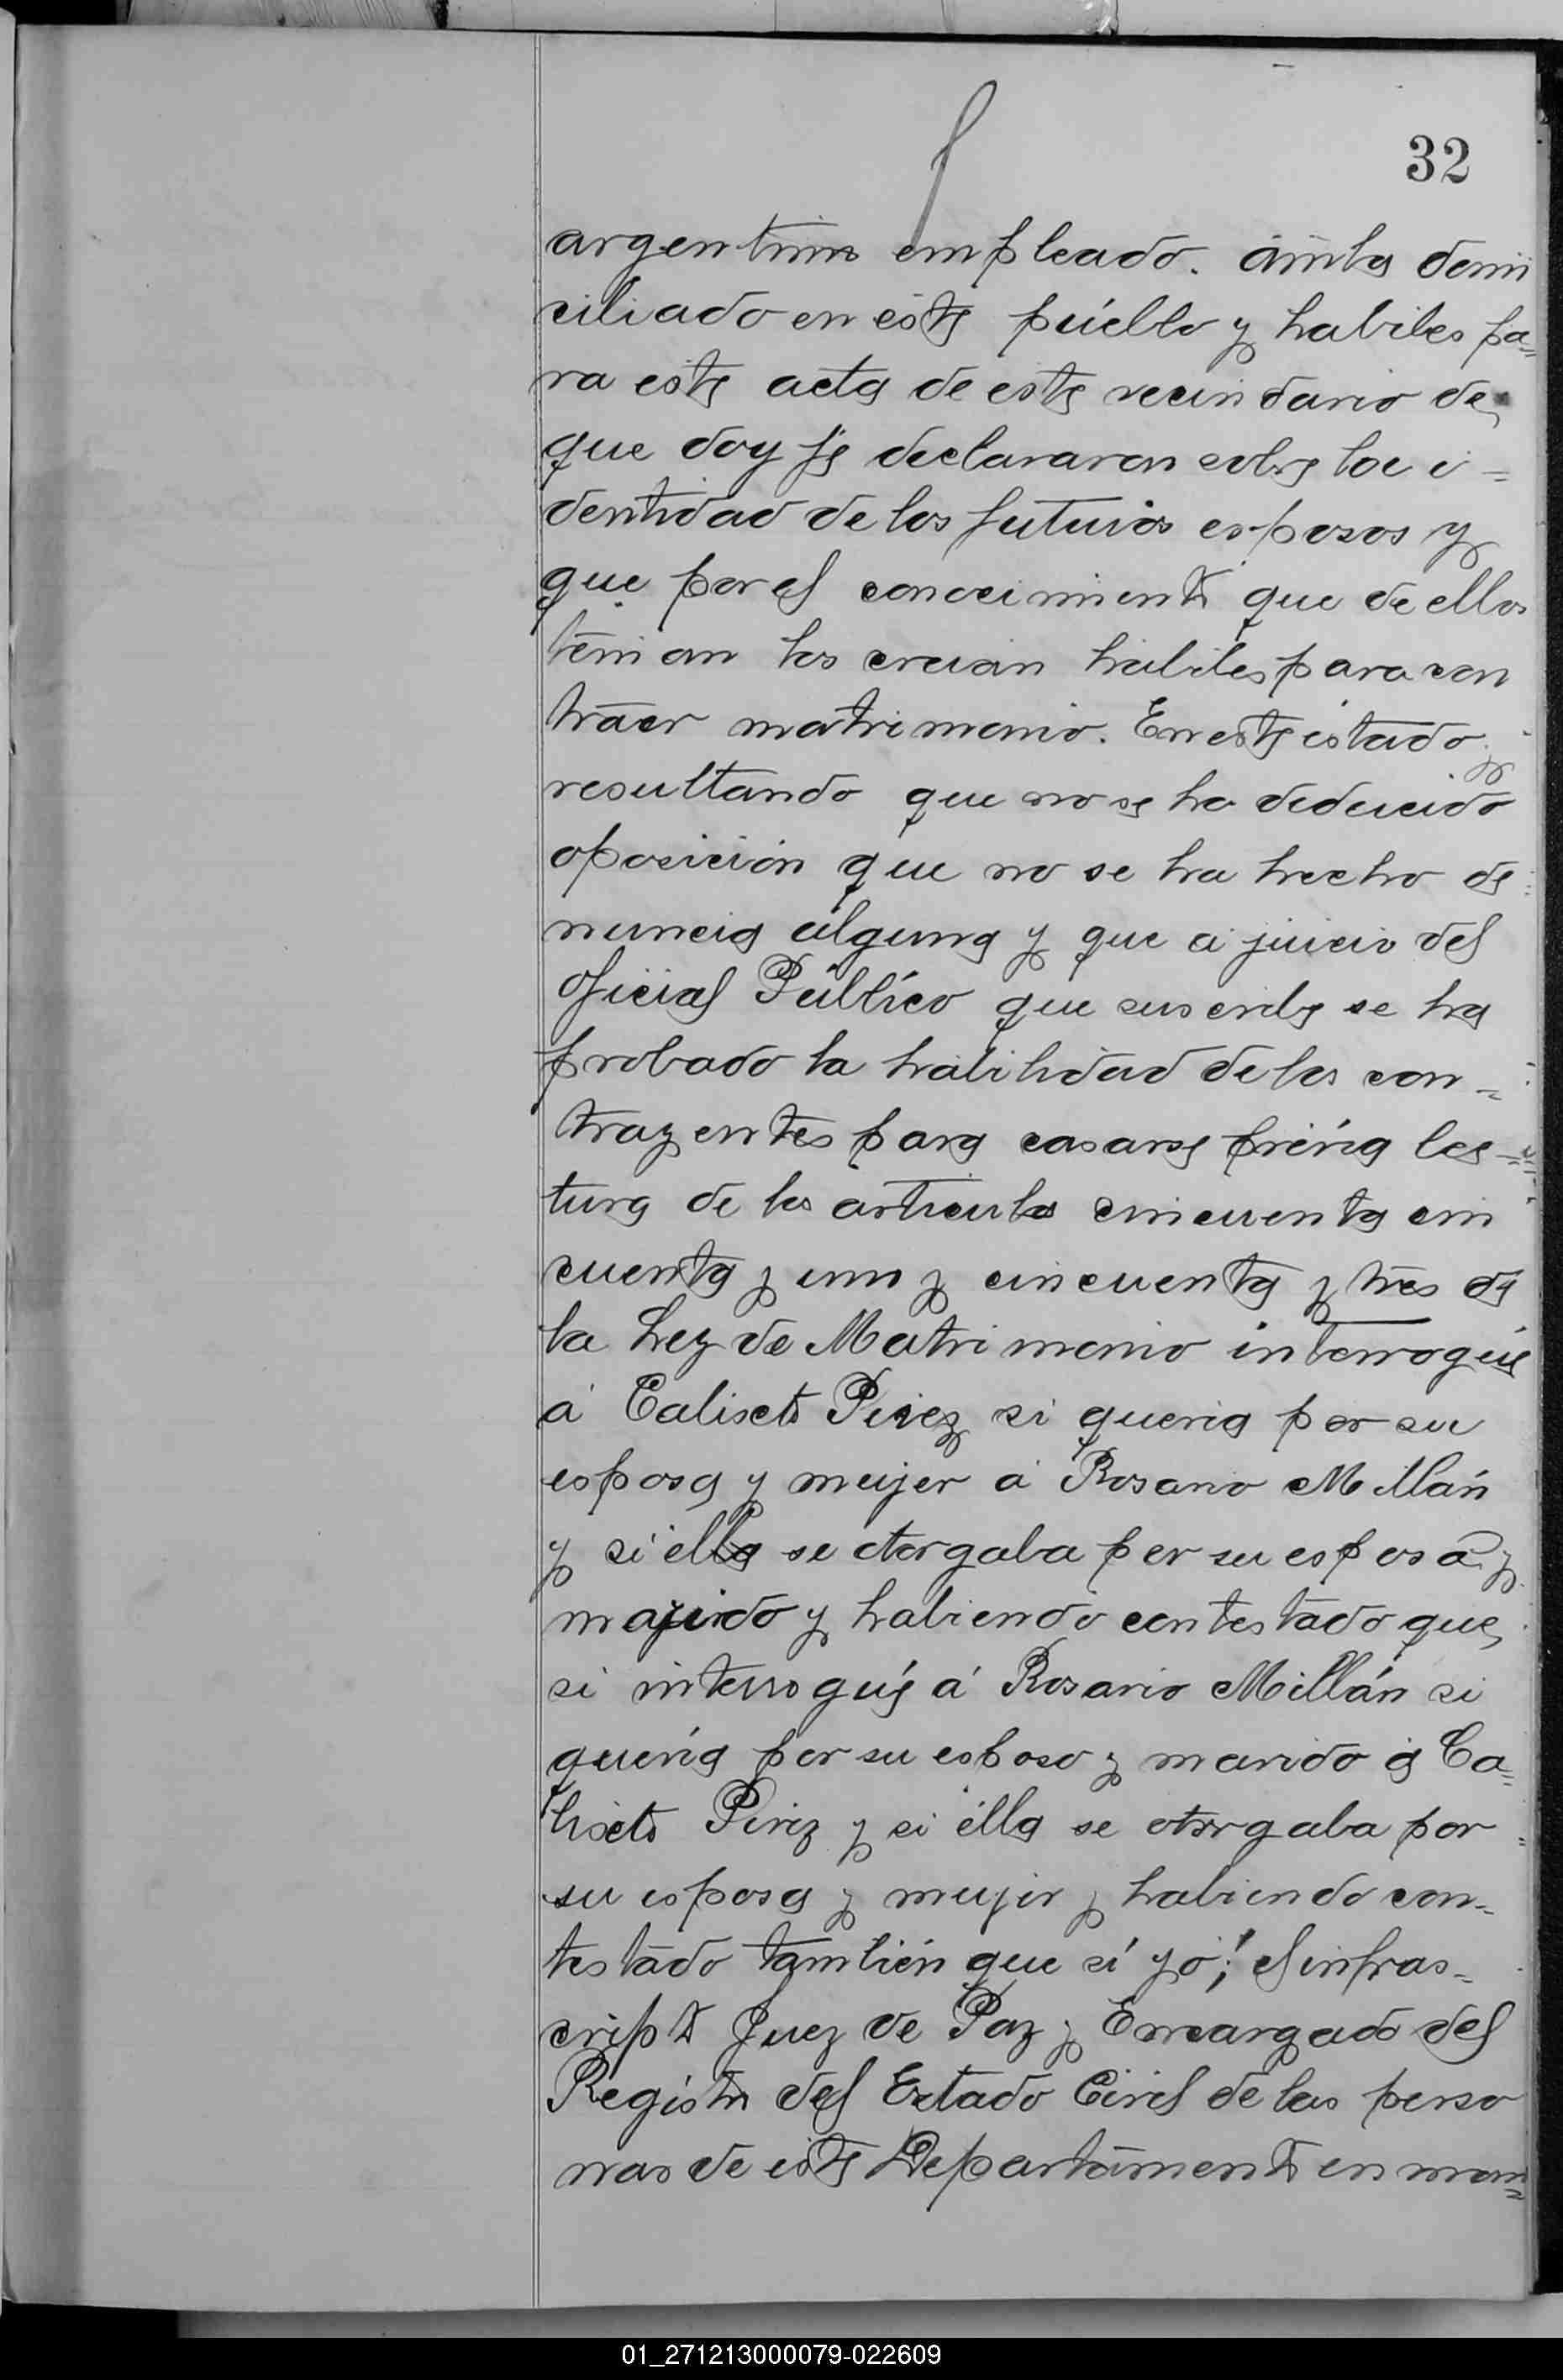 32
argentino empleado. ambos domi
ciliado en este pueblo y habiles pa=
ra este acto de este vecindario de
que doy fé declararon sobre la i=
dentidad de los futuros esposos y
que por el conocimiento que de ellos
tenian los creian habiles para con
traer matrimonio. En este estado y
resultando que no se ha deducido
oposición que no se ha hecho de
nuncia alguna y que a juicio del
Oficial Público que suscribe se ha
probado la habilidad de los con=
trayentes para casarse prévia lec=
tura de los articulos cincuenta cin
cuenta y uno y cincuenta y tres de
la Ley de Matrimonio interrogué
á Calisto Perez si queria por su
esposa y mujer á Rosario Millán
y si ella se otorgaba por su esposa y
marido y habiendo contestado que
si interrogué á Rosario Millán si
quería por su esposo y marido a Ca=
lixto Perez y si ella se otorgaba por
su esposa y mujer y habiendo con=
testado también que sí yo; el infras=
cripto Juez de Paz y Encargado del
Registro del Estado Civil de las perso
nas de este Departamento en nom=
01_271213000079-022609